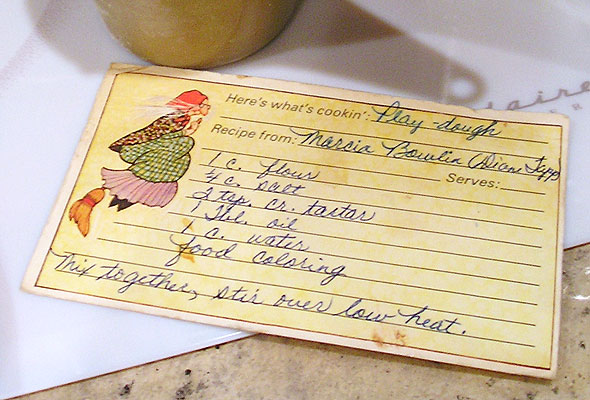 Here's what's cookin': Play-dough
Recipe from: Marcia Bowlin (Diane Tepp
Serves:
1 c. flour
¼ c. salt
2 tsp. cr. tartar
1 Tbl. oil
1 c. water
food coloring
Mix together, stir over low heat.